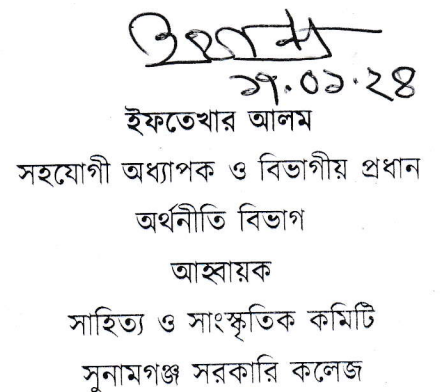 ১৭.০১.২৪
ইফতেখার আলম
সহযোগী অধ্যাপক ও বিভাগীয় প্রধান
অর্থনীতি বিভাগ
আহ্বায়ক
সাহিত্য ও সাংস্কৃতিক কমিটি
সুনামগঞ্জ সরকারি কলেজ